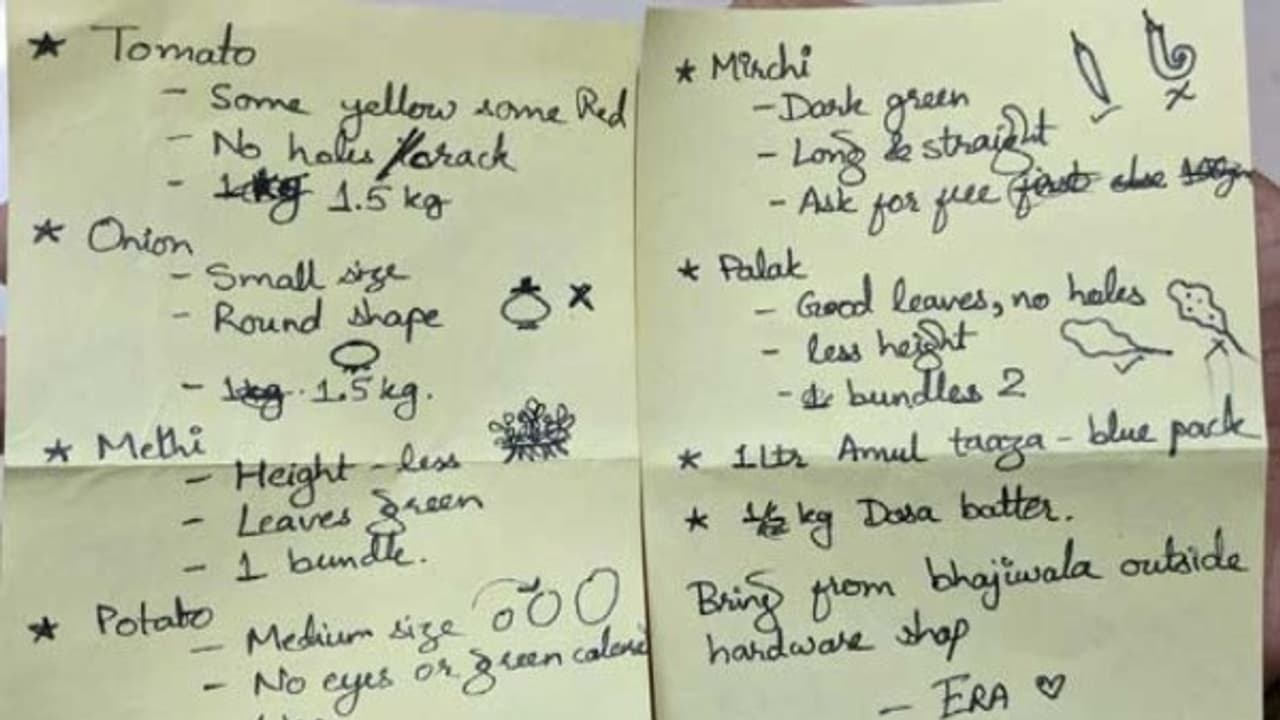 ★ Tomato
- Some yellow some Red
- No holes / crack
- 1.5 kg
★ Onion
- Small size
- Round shape
- 1.5 kg.
★ Methi
- Height - less
- Leaves green
- 1 bundle.
★ Potato
- Medium size
- No eyes or green
★ Mirchi
- Dark green
- Long & straight
- Ask for free
★ Palak
- Good leaves, no holes
- less height
- bundles 2
★ 1Ltr Amul taaza - blue pack
★ 1/2 kg Dosa batter.
Bring from bhajiwala outside
hardware shop
- ERA ♡